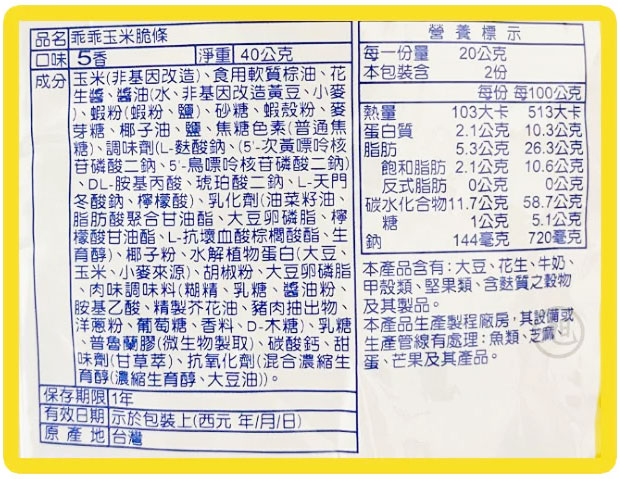 品名 乖乖玉米脆條
口味 5香 淨重 40公克
成分 玉米(非基因改造)、食用軟質棕油、花
生醬、醬油(水、非基因改造黃豆、小麥
)、蝦粉(蝦粉、鹽)、砂糖、蝦殼粉、麥
芽糖、椰子油、鹽、焦糖色素(普通焦
糖)、調味劑(L-麩酸鈉、(5'-次黃嘌呤核
苷磷酸二鈉、5'-鳥嘌呤核苷磷酸二鈉)
、DL-胺基丙酸、琥珀酸二鈉、L-天門
冬酸鈉、檸檬酸)、乳化劑(油菜籽油、
脂肪酸聚合甘油酯、大豆卵磷脂、檸
檬酸甘油酯、L-抗壞血酸棕櫚酸酯、生
育醇)、椰子粉、水解植物蛋白(大豆、
玉米、小麥來源)、胡椒粉、大豆卵磷脂
、肉味調味料(糊精、乳糖、醬油粉、
胺基乙酸、精製芥花油、豬肉抽出物、
洋蔥粉、葡萄糖、香料、D-木糖)、乳糖
、普魯蘭膠(微生物製取)、碳酸鈣、甜
味劑(甘草萃)、抗氧化劑(混合濃縮生
育醇(濃縮生育醇、大豆油))。
保存期限 1年
有效日期 示於包裝上(西元 年/月/日)
原產地 台灣
營養標示
每一份量 20公克
本包裝含 2份
每份 每100公克
熱量 103大卡 513大卡
蛋白質 2.1公克 10.3公克
脂肪 5.3公克 26.3公克
飽和脂肪 2.1公克 10.6公克
反式脂肪 0公克 0公克
碳水化合物 11.7公克 58.7公克
糖 1公克 5.1公克
鈉 144毫克 720毫克
本產品含有:大豆、花生、牛奶、
甲殼類、堅果類、含麩質之穀物
及其製品。
本產品生產製程廠房,其設備或
生產管線有處理:魚類、芝麻、
蛋、芒果及其產品。